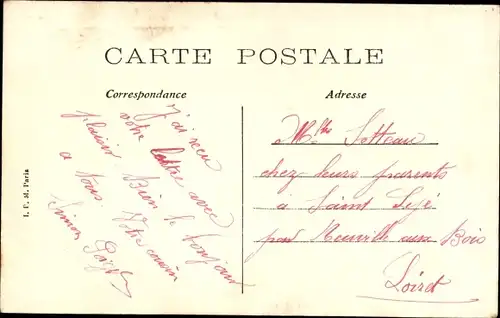 CARTE POSTALE
Correspondance
Adresse
J'ai reçu
votre lettre avec
plaisir Bien le bonjour
a tous. Votre cousin
Simon
Mlles Sotteau
chez leurs parents
a Saint
par Neuville aux Bois
Loiret
I. P. M. Paris